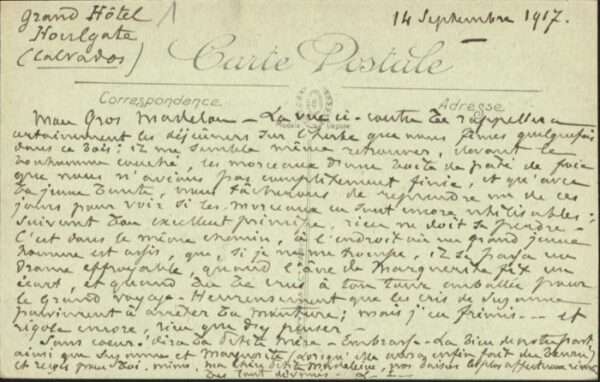 Grand Hôtel
Houlgate
(Calvados)
1
14 Septembre 1917.
Carte Postale
Correspondance
Adresse
Mon Gros Madelon - La vue ci-contre te rappellera
certainement les déjeuners sur l'herbe que nous fîmes quelquefois
dans ce bois : il me semble même retrouver, devant le
bonhomme couché, les morceaux d'une boîte de pâté de foie
que nous n'avions pas complètement finie, et qu'avec
ta jeune tante, nous tâcherons de reprendre un de ces
jours pour voir si les morceaux en sont encore utilisables :
suivant ton excellent principe, rien ne doit se perdre -
C'est dans le même chemin, à l'endroit où un grand jeune
homme est assis, que, si je ne me trompe, il se passa un
drame effroyable, quand l'âne de Marguerite fit un
écart, et quand tu te crus à ton tour emballée pour
le grand voyage - Heureusement que les cris de Suzanne
parvinrent à arrêter ta monture ; mais j'en frémis --- et
rigole encore, rien que d'y penser -
Sans coeur ! dira la petite mère - Embrasse-la bien de notre part,
ainsi que Suzanne et Marguerite (lorsqu'elle aura enfin fait
et reçois pour toi-même, ma chère petite Madeleine, nos baisers les plus affectueux